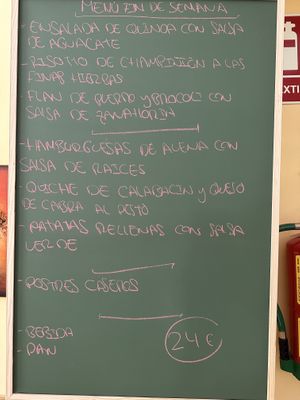 MENÚ FIN DE SEMANA
- ENSALADA DE QUINOA CON SALSA
DE AGUACATE
- RISOTTO DE CHAMPIÑÓN A LAS
FINAS HIERBAS
- FLAN DE PUERRO Y BROCOLI CON
SALSA DE ZANAHORIA
- HAMBURGUESAS DE AVENA CON
SALSA DE RAICES
- QUICHE DE CALABACIN Y QUESO
DE CABRA AL PESTO
- PATATAS RELLENAS CON SALSA
VERDE
- POSTRES CASEROS
- BEBIDA
- PAN
24€
EXTI